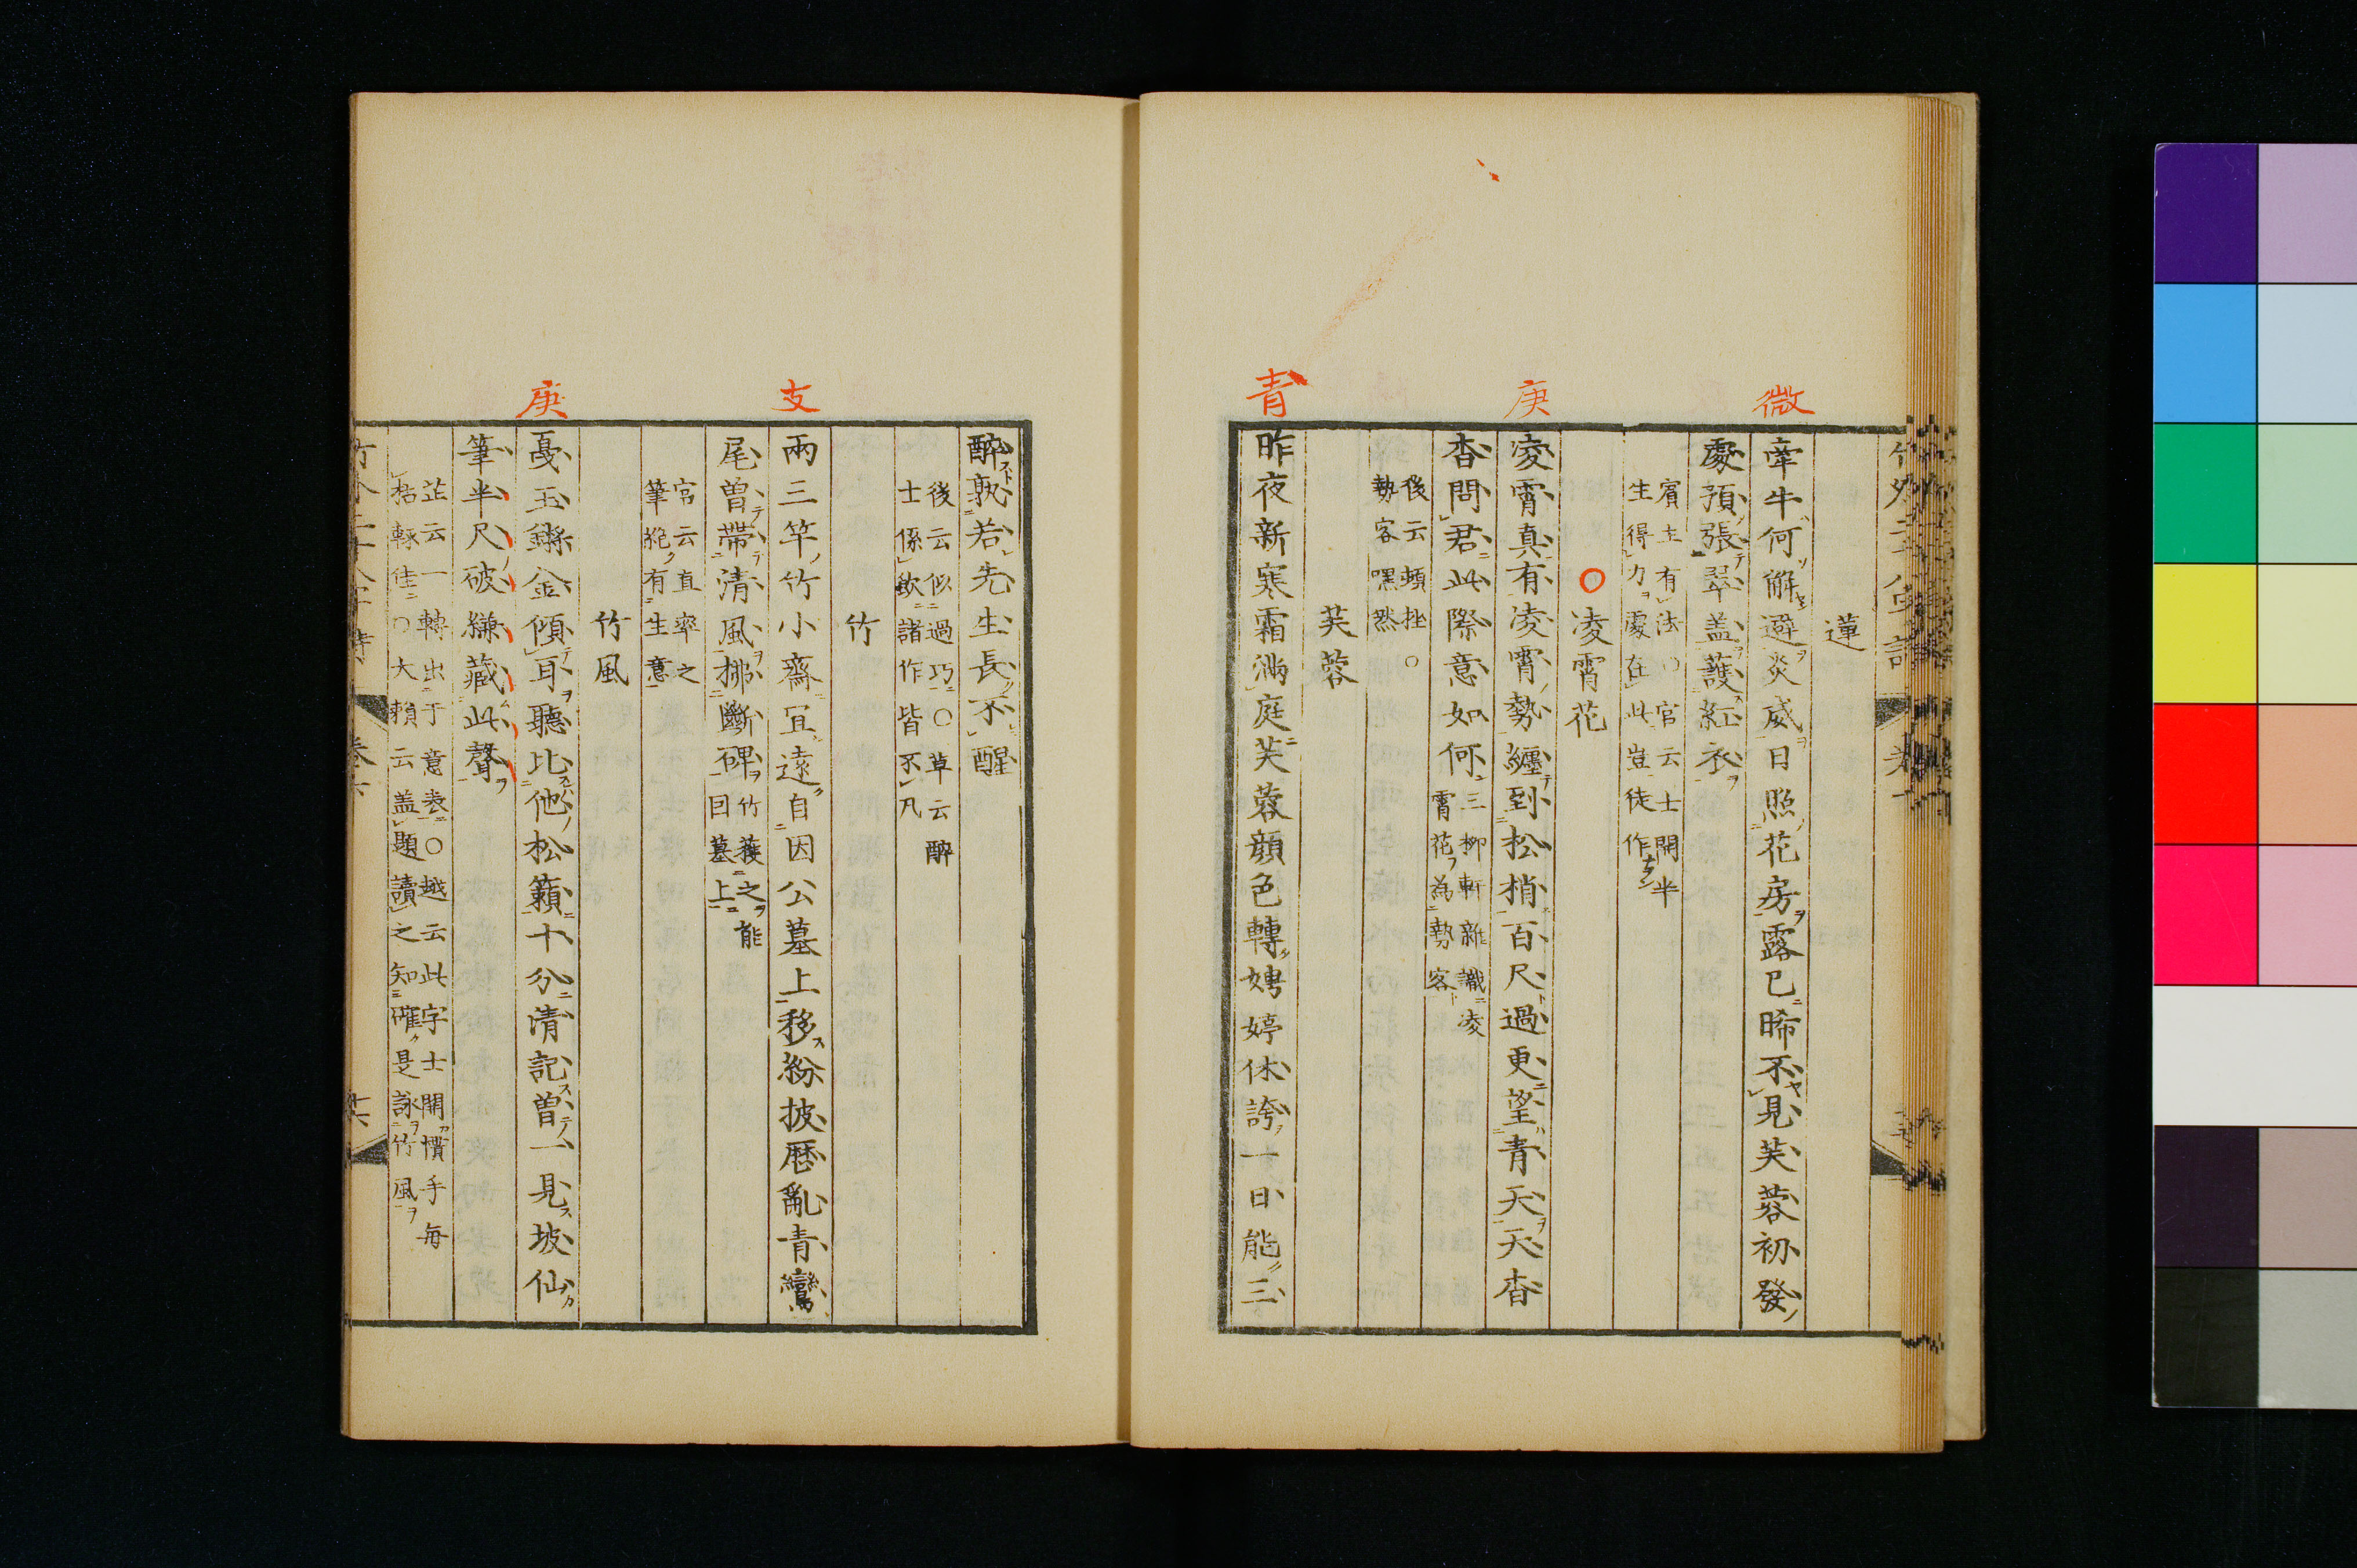 微
庚
青
蓮
牽牛何解避炎威日照花房露已晞不見芙蓉初發
處預張翠盖護紅衣
賓主有法○官云士開半
生得力處在此豈徒作
○凌霄花
凌霄真有凌霄勢纏到松梢百尺過更望青天天杳
杳問君此際意如何
三柳軒雜識凌
霄花為勢客
後云頓挫○
勢客嘿然
芙蓉
昨夜新寒霜滿庭芙蓉顔色轉娉婷休誇一日能三
支
庚
醉孰若先生長不醒
後云似過巧○草云醉
士係歟諸作皆不凡
竹
兩三竿竹小齋冝遠自因公墓上移紛披暦亂青鸞
尾曽帶清風挪斷碑
竹獲之能
因墓上
官云直率之
筆絶有生意
竹風
戞玉鏘金傾耳聽比他松籟十分清記曽一見坡仙
筆半尺破縑藏此聲
芷云一轉出于意表○越云此字士開慣手毎
括輒佳○大頼云盖題讀之知確是詠竹風
卷六